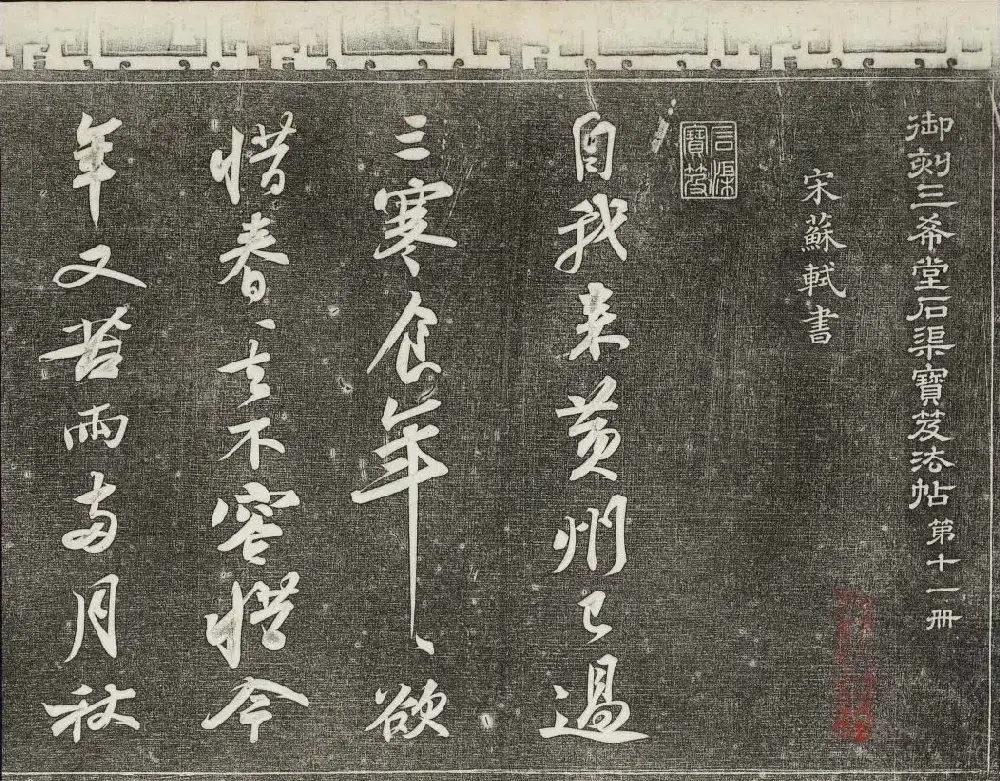 御刻三希堂石渠寶笈法帖第十一冊
宋蘇軾書
石渠寶笈
自我来黄州已過
三寒食年〻欲
惜春〻去不容惜今
年又苦雨兩月秋